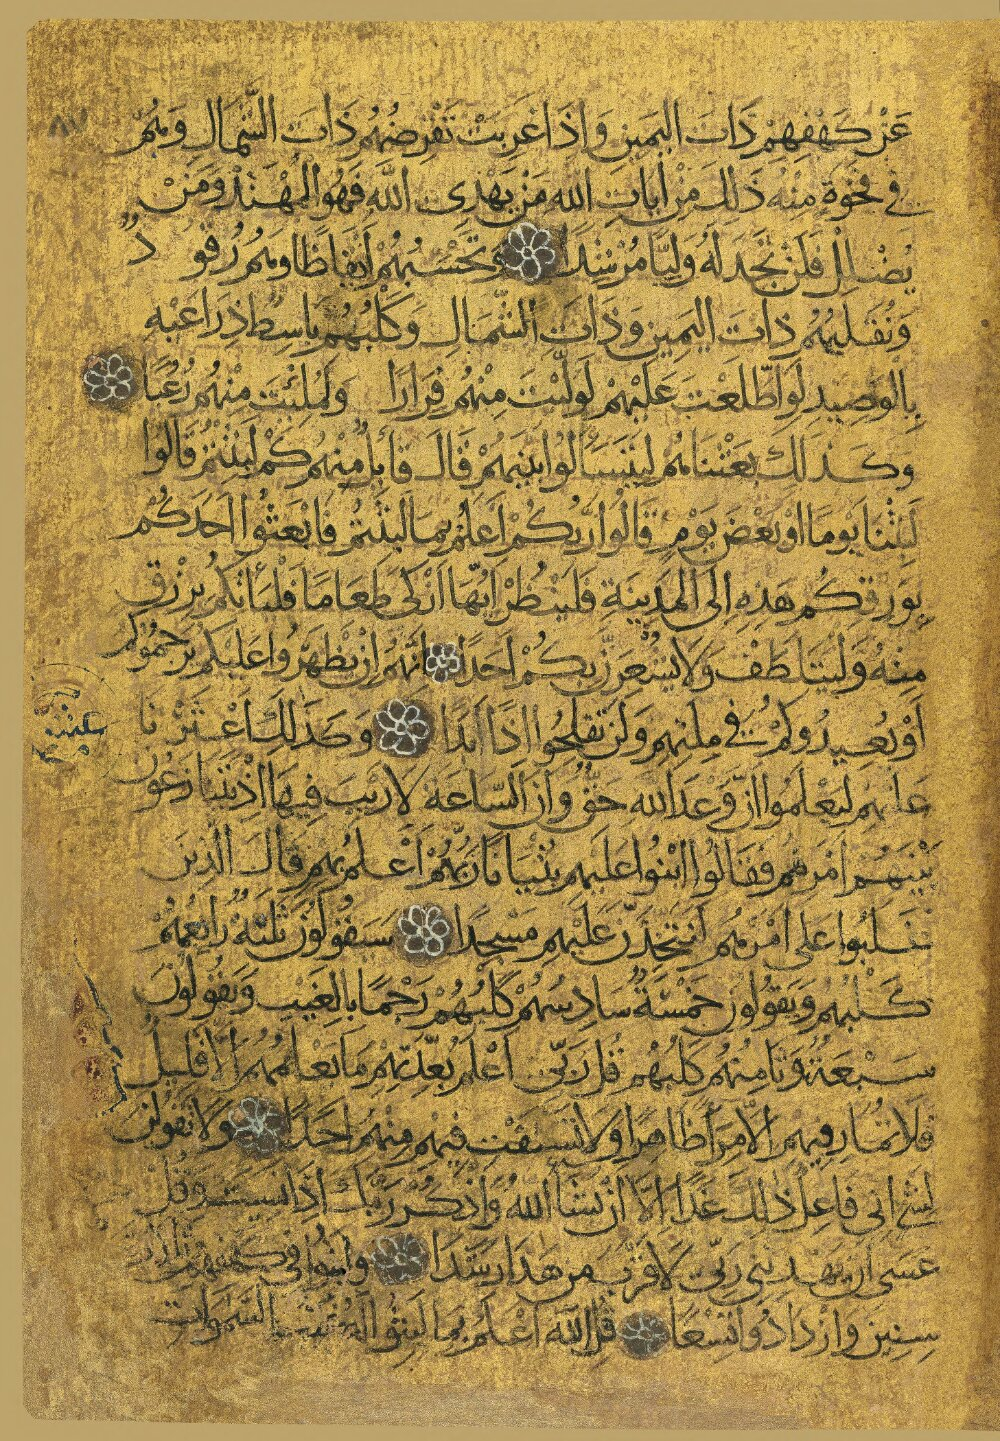 عَنْ كَهْفِهِمْ ذَاتَ الْيَمِينِ وَإِذَا غَرَبَتْ تَقْرِضُهُمْ ذَاتَ الشِّمَالِ وَهُمْ
فِي فَجْوَةٍ مِنْهُ ذَلِكَ مِنْ آيَاتِ اللهِ مَنْ يَهْدِي اللهُ فَهُوَ الْمُهْتَدِ وَمَنْ
يُضْلِلْ فَلَنْ تَجِدَ لَهُ وَلِيًّا مُرْشِدًا وَتَحْسَبُهُمْ أَيْقَاظًا وَهُمْ رُقُودٌ
وَنُقَلِّبُهُمْ ذَاتَ الْيَمِينِ وَذَاتَ الشِّمَالِ وَكَلْبُهُمْ بَاسِطٌ ذِرَاعَيْهِ
بِالْوَصِيدِ لَوِ اطَّلَعْتَ عَلَيْهِمْ لَوَلَّيْتَ مِنْهُمْ فِرَارًا وَلَمُلِئْتَ مِنْهُمْ رُعْبًا
وَكَذَلِكَ بَعَثْنَاهُمْ لِيَتَسَاءَلُوا بَيْنَهُمْ قَالَ قَائِلٌ مِنْهُمْ كَمْ لَبِثْتُمْ قَالُوا
لَبِثْنَا يَوْمًا أَوْ بَعْضَ يَوْمٍ قَالُوا رَبُّكُمْ أَعْلَمُ بِمَا لَبِثْتُمْ فَابْعَثُوا أَحَدَكُمْ
بِوَرِقِكُمْ هَذِهِ إِلَى الْمَدِينَةِ فَلْيَنْظُرْ أَيُّهَا أَزْكَى طَعَامًا فَلْيَأْتِكُمْ بِرِزْقٍ
مِنْهُ وَلْيَتَلَطَّفْ وَلَا يُشْعِرَنَّ بِكُمْ أَحَدًا إِنَّهُمْ إِنْ يَظْهَرُوا عَلَيْكُمْ يَرْجُمُوكُمْ
أَوْ يُعِيدُوكُمْ فِي مِلَّتِهِمْ وَلَنْ تُفْلِحُوا إِذًا أَبَدًا وَكَذَلِكَ أَعْثَرْنَا
عَلَيْهِمْ لِيَعْلَمُوا أَنَّ وَعْدَ اللهِ حَقٌّ وَأَنَّ السَّاعَةَ لَا رَيْبَ فِيهَا إِذْ يَتَنَازَعُونَ
بَيْنَهُمْ أَمْرَهُمْ فَقَالُوا ابْنُوا عَلَيْهِمْ بُنْيَانًا رَبُّهُمْ أَعْلَمُ بِهِمْ قَالَ الَّذِينَ
غَلَبُوا عَلَى أَمْرِهِمْ لَنَتَّخِذَنَّ عَلَيْهِمْ مَسْجِدًا سَيَقُولُونَ ثَلَثَةٌ رَابِعُهُمْ
كَلْبُهُمْ وَيَقُولُونَ خَمْسَةٌ سَادِسُهُمْ كَلْبُهُمْ رَجْمًا بِالْغَيْبِ وَيَقُولُونَ
سَبْعَةٌ وَثَامِنُهُمْ كَلْبُهُمْ قُلْ رَبِّي أَعْلَمُ بِعِدَّتِهِمْ مَا يَعْلَمُهُمْ إِلَّا قَلِيلٌ
فَلَا تُمَارِ فِيهِمْ إِلَّا مِرَاءً ظَاهِرًا وَلَا تَسْتَفْتِ فِيهِمْ مِنْهُمْ أَحَدًا وَلَا تَقُولَنَّ
لِشَيْءٍ إِنِّي فَاعِلٌ ذَلِكَ غَدًا إِلَّا أَنْ يَشَاءَ اللهُ وَاذْكُرْ رَبَّكَ إِذَا نَسِيتَ وَقُلْ
عَسَى أَنْ يَهْدِيَنِي رَبِّي لِأَقْرَبَ مِنْ هَذَا رَشَدًا وَلَبِثُوا فِي كَهْفِهِمْ
سِنِينَ وَازْدَادُوا تِسْعًا قُلِ اللهُ أَعْلَمُ بِمَا لَبِثُوا لَهُ غَيْبُ السَّمَوَاتِ